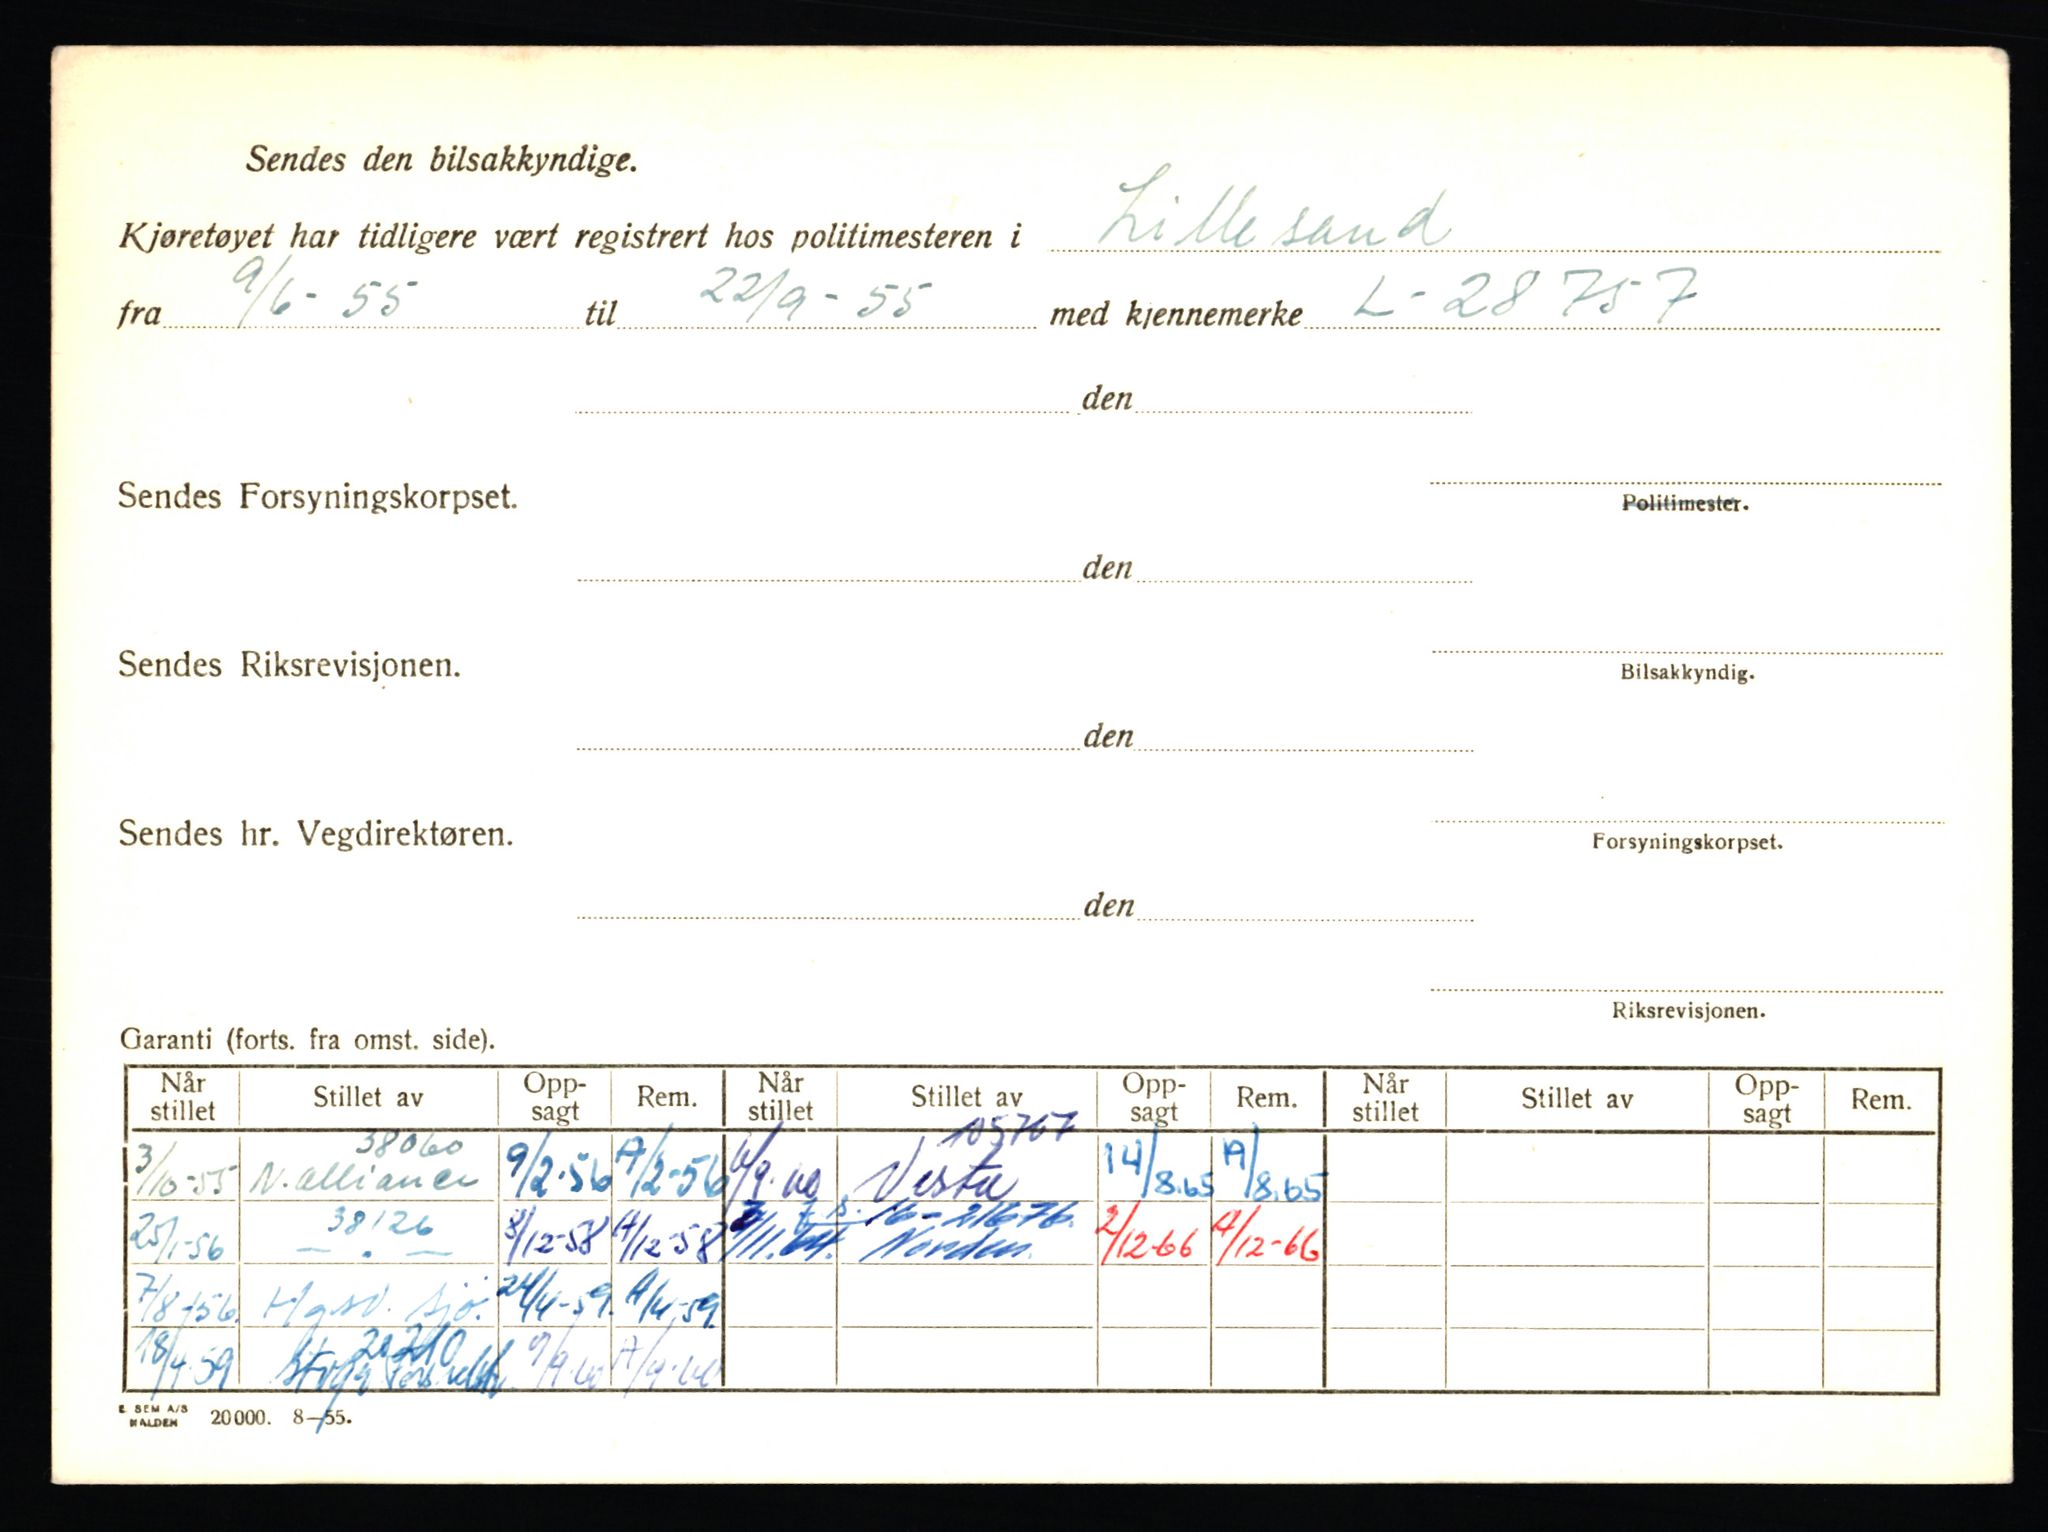 Sendes den bilsakkyndige.
Kjøretøyet har tidligere vært registrert hos politimesteren i Lillesand
fra 9/6-55 til 22/9-55 med kjennemerke L-28757
den
Sendes Forsyningskorpset.
Politimester.
den
Sendes Riksrevisjonen.
Bilsakkyndig.
den
Sendes hr. Vegdirektøren.
Forsyningskorpset.
den
Riksrevisjonen.
Garanti (forts. fra omst. side).
Når stillet Stillet av Oppsagt Rem. Når stillet Stillet av Oppsagt Rem. Når stillet Stillet av Oppsagt Rem.
38060 105767
3/10-55 N. alliance 9/2-56 A/2-56 Vesta 14/8.65 A/8.65
38126 16-21676.
25/1-56 — . — 8/12-58 A/12-58 Norden. 2/12-66 A/12-66
7/8-56. sjø. 24/4-59. A/4-59.
20210
18/4-59 9/9-60 A/9-60
E. SEM A/S HALDEN 20000. 8—55.